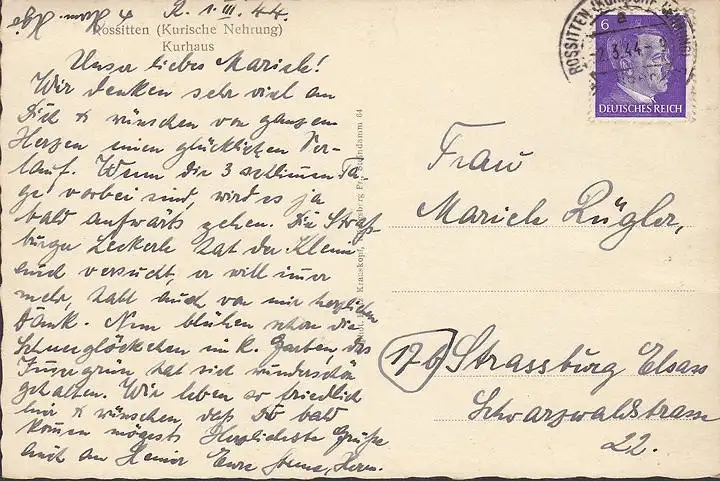 R. 1. III. 44.
Rossitten (Kurische Nehrung)
Kurhaus
Unser liebes Mariele!
Wir denken sehr viel an
Dich & wünschen von ganzem
Herzen einen glücklichen Ver-
lauf. Wenn die 3 schlimen Ta-
ge vorbei sind, wird es ja
bald aufwärts gehen. Die Straß-
burger Leckerle hat der Kleine
und versucht, er will imer
mehr, habt auch von mir herzlichen
Dank. Nun blühen schon die
Schneeglöckchen im K. Garten, das
Imergrün hat sich wunderschön
gehalten. Wir leben so friedlich
hier & wünschen, daß Du bald
komen mögest. Herzlichste Grüße
auch an Heiner Eure Herm.
Krauskopf, Königsberg Pr., Steindamm 64
ROSSITTEN (KURISCHE NEHRUNG)
a
-2.3.44-9
6
DEUTSCHES REICH
Frau
Mariele Rügler,
17b Strassburg Elsass
Schwarzwaldstrasse
22.